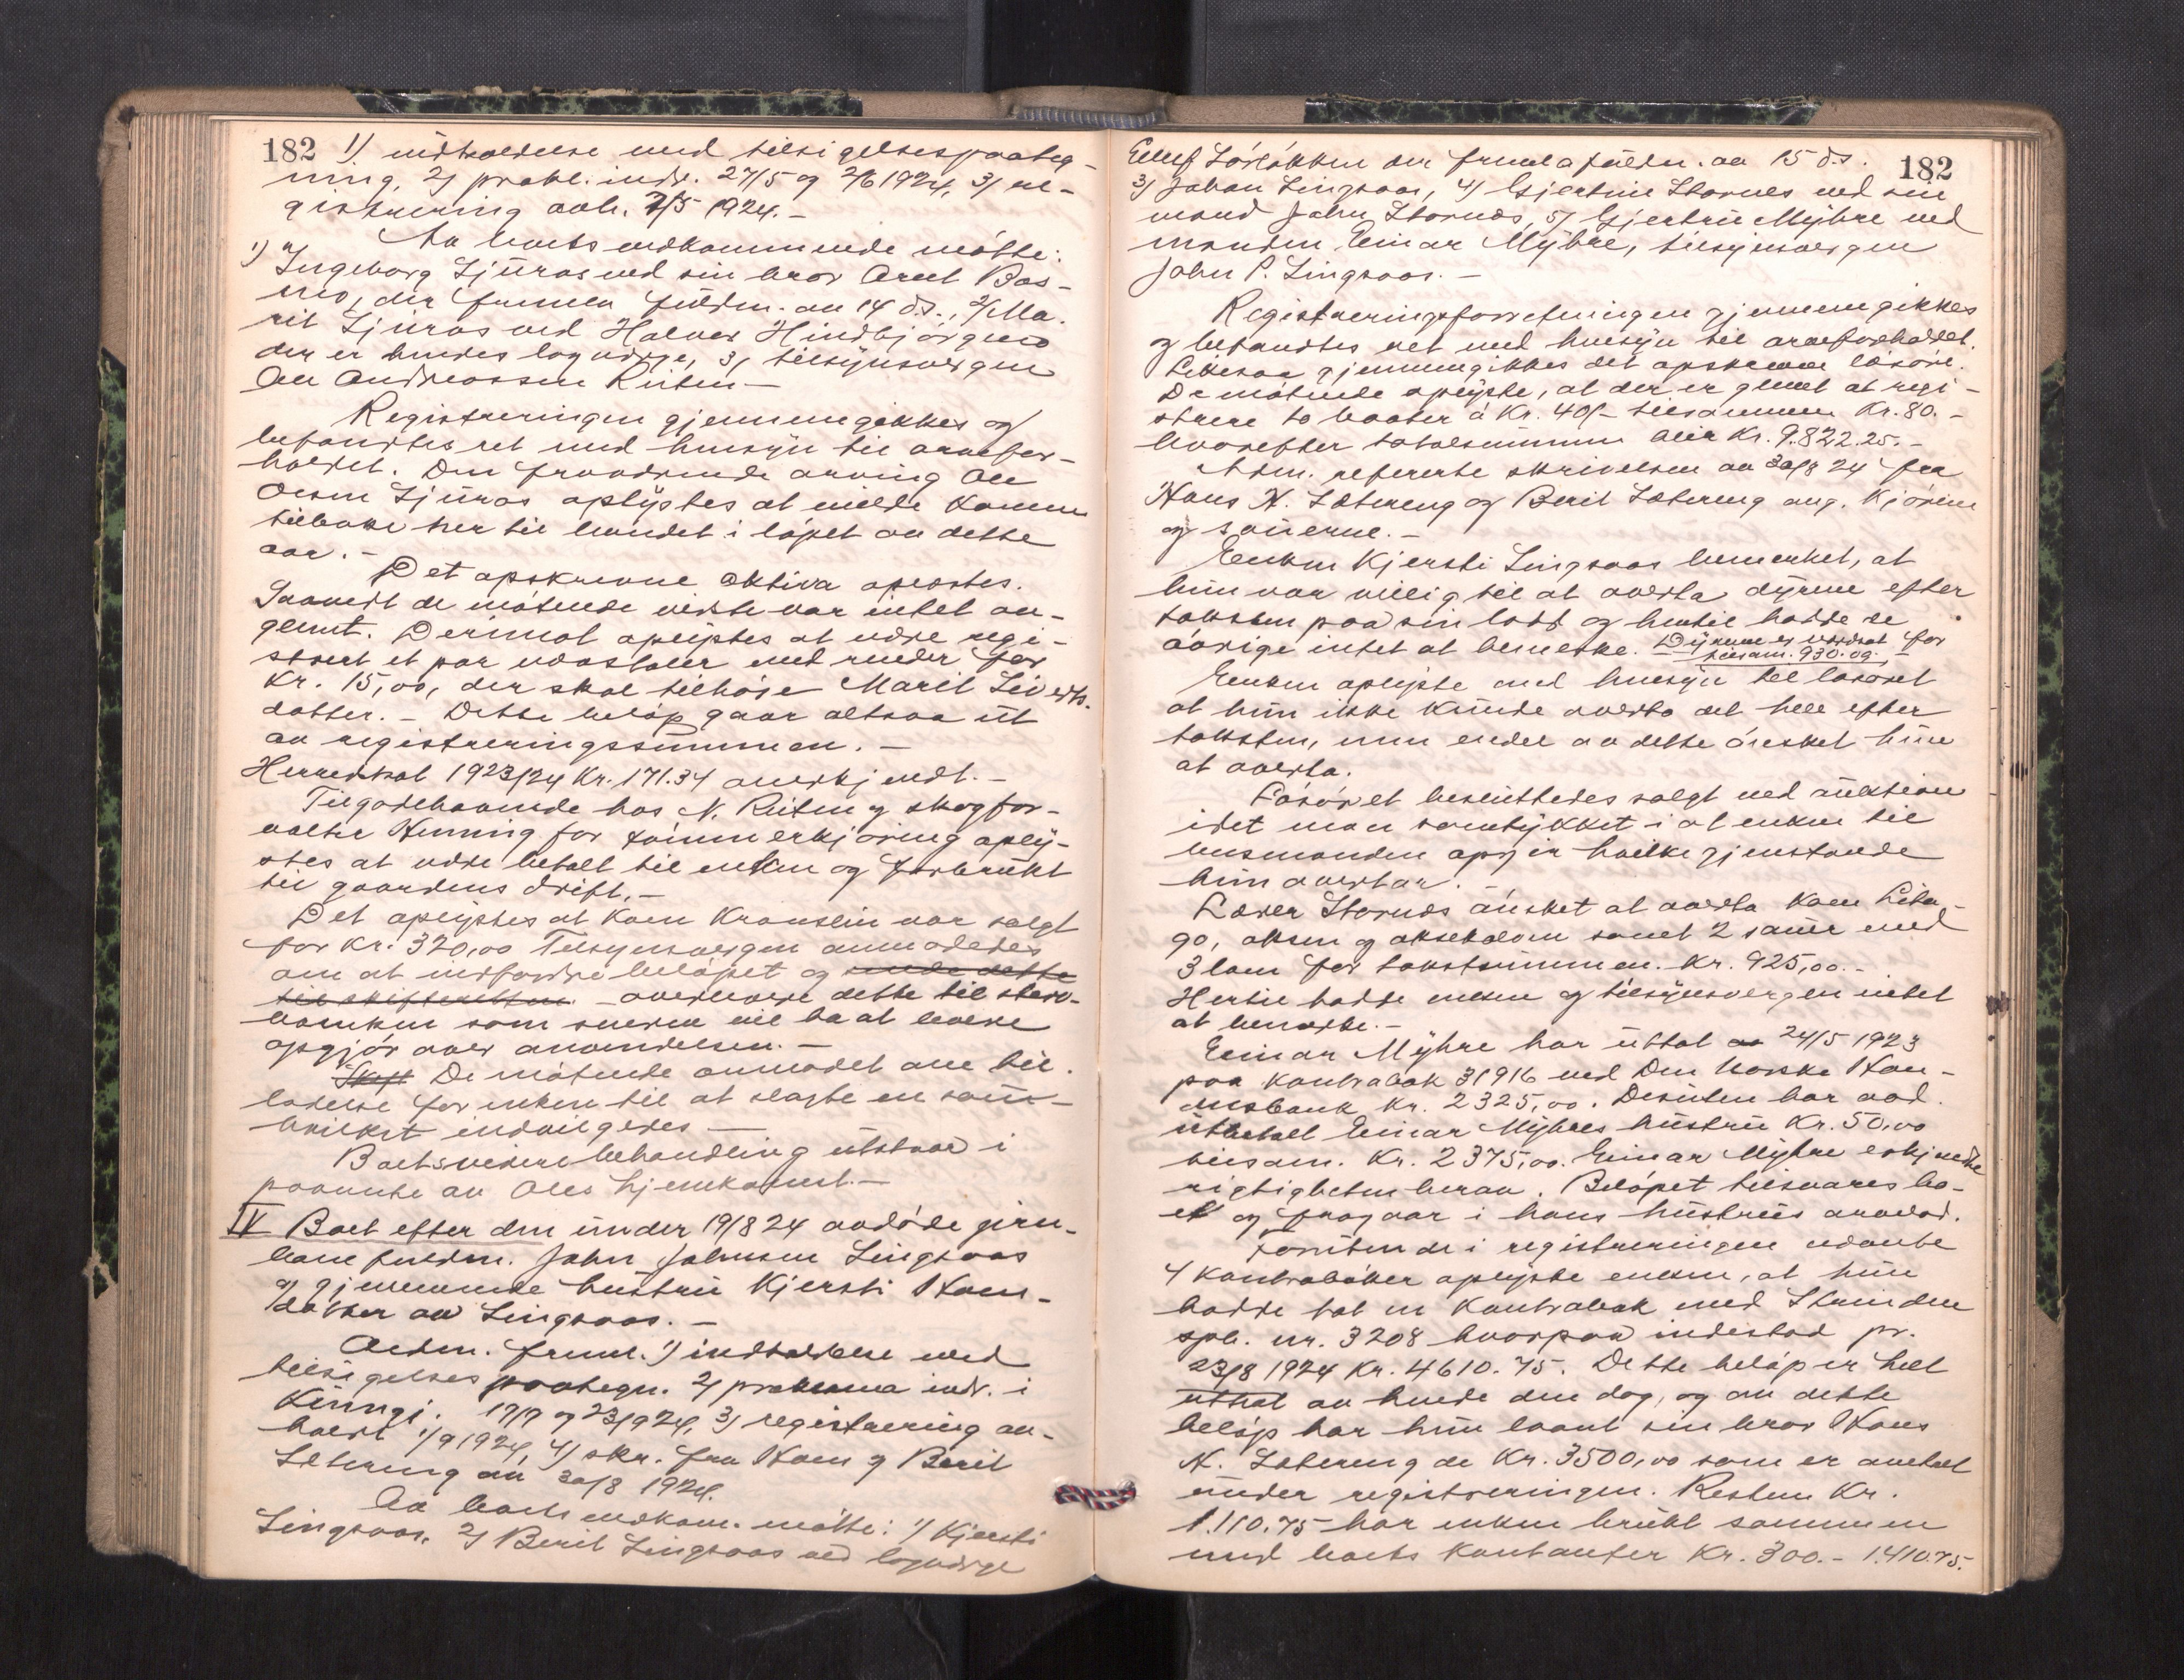 182 1) indkaldelse med tilsigelsespaateg-
ning, 2) prokl. indr. 27/5 og 2/6 1924, 3) re-
gistrering avh. 7/5 1924.-
Paa boets vedkommende møtte:
1) Ingeborg Ljüras ved sin bror Arnt Bos-
mo, der fremla fuldm. av 14 d.s., 2) Ma-
rit Ljüras ved Halvor Hindbjørgmo
der er hendes lagværge, 3) tilsynsvergen
Ole Andreassen Rüten -
Registreringen gjennemgikkes og
befandtes ret med hensyn til arvefor-
holdet. Den fraværende arving Ole
Olsen Ljüras oplystes at ville komme
tilbake her til landet i løpet av dette
aar. -
Det opskrevne aktiva oplæstes.
Saavidt de møtende visste var intet ute-
glemt. Derimot oplystes at være regi-
strert et par vedastabler med render for
Kr. 15,00, der skal tilhøre Marit Siverts-
datter. - Dette beløp gaar altsaa ut
av registreringssummen. -
Herredskat 1923/24 Kr. 171.34 anerkjendt. -
Tilgodehavende hos N. Rüten og skogfor-
valter Henning for tømmerkjøring oply-
stes at være betalt til enken og forbrukt
til gaardens drift. -
Det oplystes at koen Kranslin var solgt
for Kr. 320,00 Tilsynsvergen anmodedes
om at indfordre beløpet og sende dette
til skifteretten - overlevere dette til sterv-
boenken som senere vil ha at levere
opgjør over anvendelsen. -
Skift De møtende anmodet om til-
ladelse for enken til at slagte en sau -
hvilket indvilgedes -
Boets videre behandling utstaar i
paavente av Oles hjemkomst. -
IV Boet efter den under 19/8 24 avdøde gjen-
boer fuldm. John Johnsen Lingsaas
og gjenlevende hustru Kjersti Hans-
datter av Lingsaas. -
Adm. freml. 1) indkaldelse med
tilsigelsespaategn. 2) proklama indr. i
Kunngj. 17/9 og 23/9 24, 3) registrering av-
holdt 1/9 1924, 4) skr. fra Hans og Berit
Sætereng av 30/8 1924.
Paa boets vedkom. møtte: 1) Kjersti
Lingsaas, 2) Berit Lingsaas ved lagværge
182
Ellef Lørløkken der fremla fuldm. av 15 d.s.
3) Johan Lingsaas, 4) Gjertine Stornes ved sin
mand John Stornæs, 5) Gjertrü Myhre ved
manden Einar Myhre, tilsynsvergen
John P. Lingsaas. -
Registreringsforretningen gjennemgikkes
og befandtes ret med hensyn til arveforholdet.
Likesaa gjennemgikkes det opskrevne løsøre.
De møtende oplyste, at der er glemt at regi-
strere to baater á Kr. 40,- tilsammen Kr. 80. -
hvorefter totalsummen blir Kr. 9.822.25. -
Adm. refererte skrivelsen av 30/8 24 fra
Hans H. Sætereng og Berit Sætereng ang. kjørene
og sauerne. -
Enken Kjersti Lingsaas bemerket, at
hun var villig til at overta dyrene efter
taksten paa sin lodd og hertil hadde de
øvrige intet at bemerke. Dyrene er værdsat for
tilsam. 930.00. -
Enken oplyste med hensyn til løsøret
at hun ikke kunde overta det hele efter
taksten, men endel av dette ønsket hun
at overta.
Løsøret besluttedes solgt ved auktion
idet man samtykket i at enken til
lensmanden opgir hvilke gjenstande
hun overtar. -
Lærer Stornæs ønsket at overta koen Lita-
go, oksen og oksekalven samt 2 sauer med
3 lam for takstsummen Kr. 925,00. -
Hertil hadde enken og tilsynsvergen intet
at bemerke. -
Einar Myhre har uttat av 24/5 1923
paa kontrabok 31916 ved Den Norske Han-
delsbank Kr. 2325,00. Desuten har avd.
utbetalt Einar Myhres hustru Kr. 50,00
tilsam. Kr. 2375,00. Einar Myhre erkjendte
rigtigheten herav. Beløpet tilsvares bo-
et og fragaar i hans hustrus arvelod.
Foruten de i registreringen nævnte
4 kontrabøker oplyste enken, at hun
hadde hat en kontrabok med Strinden
spb. nr. 3208 hvorpaa indestod pr.
23/8 1924 Kr. 4610.75. Dette beløp er helt
uttat av hende den dag, og av dette
beløp har hun laant sin bror Hans
H. Sætereng de Kr. 3500,00 som er anført
under registreringen. Resten Kr.
1.110.75 har enken brukt sammen
med boets kontanter Kr. 300.- 1.410.75.